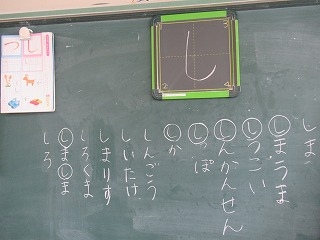 し
つし
しま
しまうま
しつこい
しんかんせん
しっぽ
しか
しんごう
しいたけ
しまりす
しろくま
しましま
しろ